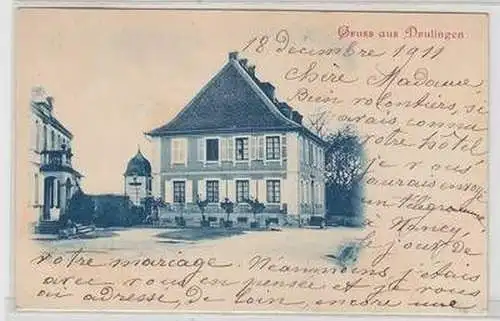 Gruss aus Deulingen
18 décembre 1911
Chère Madame
Bien volontiers, si
j'avais connu
votre hôtel
je vous
aurais envoyé
un télégramme
à Nancy,
le jour de
votre mariage. Néanmoins j'étais
avec vous en pensée et je vous
adresse, de loin, encore une